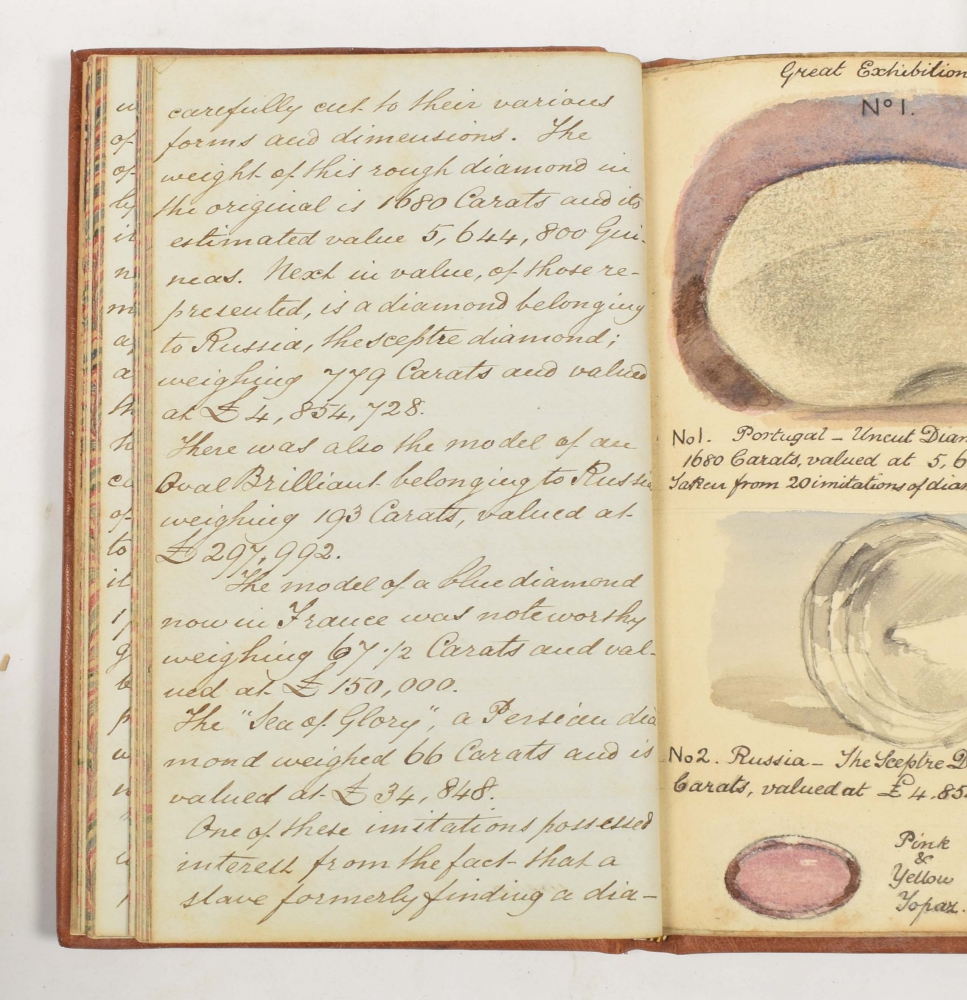 carefully cut to their various
forms and dimensions. The
weight of this rough diamond in
the original is 1680 Carats and its
estimated value 5,644,800 Gui-
neas. Next in value, of those re-
presented, is a diamond belonging
to Russia, the sceptre diamond;
weighing 779 Carats and valued
at £4,854,728.
There was also the model of an
Oval Brilliant belonging to Russia
weighing 193 Carats, valued at
£297,992.
The model of a blue diamond
now in France was noteworthy
weighing 67·1/2 Carats and val-
ued at £150,000.
The "Sea of Glory", a Persian dia
mond weighed 66 Carats and is
valued at £34,848.
One of these imitations possessed
interest from the fact that a
slave formerly finding a dia-
Great Exhibition
No 1.
No 1. Portugal – Uncut Diam
1680 Carats, valued at 5,6
Taken from 20 imitations of diam
No 2. Russia – The Sceptre D
Carats, valued at £4.85
Pink
&
Yellow
Topaz.